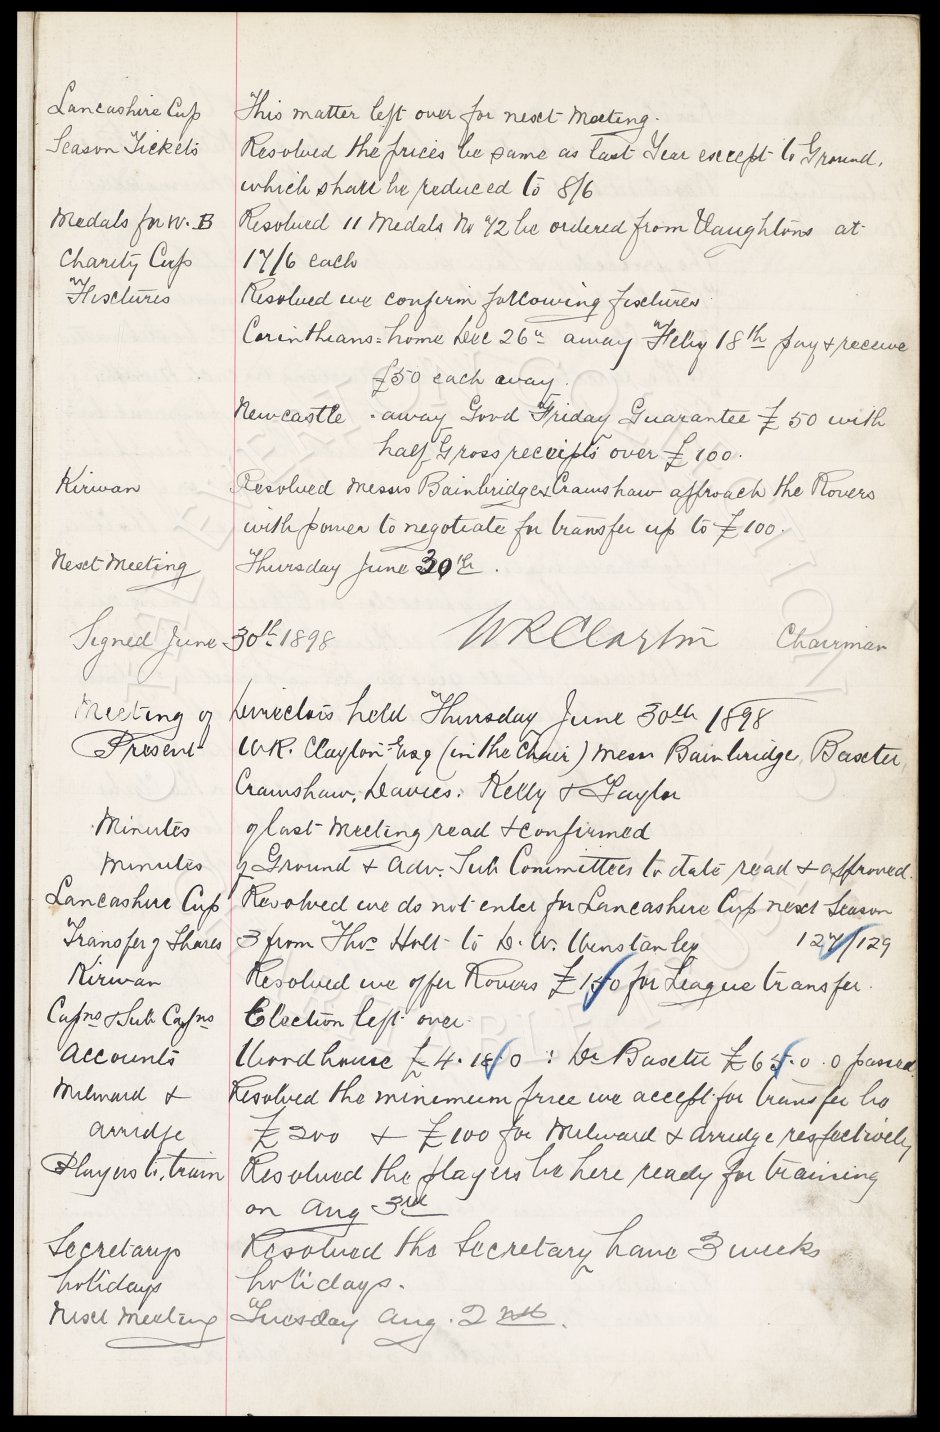 Lancashire Cup This matter left over for next Meeting.
Season Tickets Resolved the prices be same as last Year except to Ground,
which shall be reduced to 8/6
Medals for W. B Resolved 11 Medals No 42 be ordered from Vaughtons at
Charity Cup 17/6 each
Fixtures Resolved we confirm following fixtures
Corinthians = home Dec 26th away Feby 18th pay & receive
£50 each away.
Newcastle . away Good Friday Guarantee £50 with
half Gross receipts over £100.
Kirwan Resolved Messrs Bainbridge & Cramshaw approach the Rovers
with power to negotiate for transfer up to £100.
Next Meeting Thursday June 30th.
Signed June 30th 1898 WRClayton Chairman
Meeting of Directors held Thursday June 30th 1898
Present W.R. Clayton Esq (in the Chair) Messrs Bainbridge, Baxter,
Cramshaw, Davies: Kelly & Taylor
Minutes of last Meeting read & confirmed
Minutes of Ground & Adv. Sub Committees to date read & approved.
Lancashire Cup Resolved we do not enter for Lancashire Cup next Season
Transfer of Shares 3 from Thos Holt to D. W. Unstanley 127/129
Kirwan Resolved we offer Rovers £150 for League transfer.
Capns & Sub Capns Election left over.
Accounts Woodhouse £4.18.0 : Dr Baxter £65.0.0 passed
Milward & Resolved the minimum price we accept for transfer be
Arridge £200 & £100 for Milward & Arridge respectively
Players to train Resolved the players be here ready for training
on Aug 3rd
Secretarys Resolved the Secretary have 3 weeks
holidays holidays.
Next Meeting Tuesday Aug. 2nd.